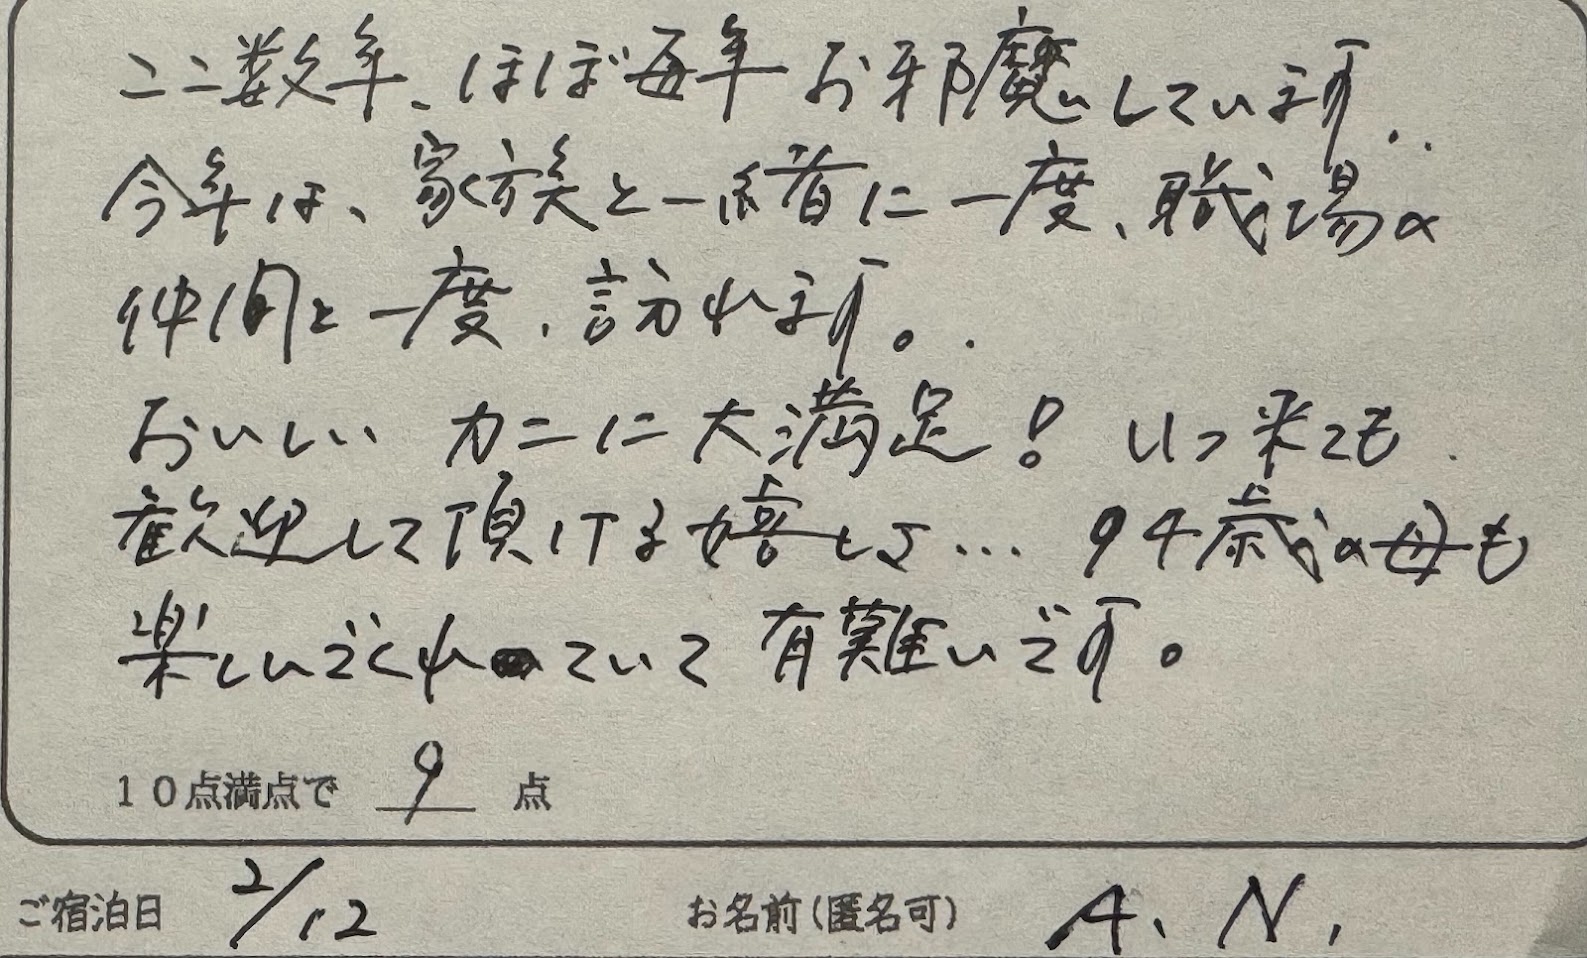 ここ数年、ほぼ毎年お邪魔しています。
今年は、家族と一緒に一度、職場の
仲間と一度、訪れます。
おいしいカニに大満足！いつ来ても
歓迎して頂ける嬉しさ… 94歳の母も
楽しんでくれていて有難いです。
10点満点で 9 点
ご宿泊日 2/12 お名前(匿名可) A. N.